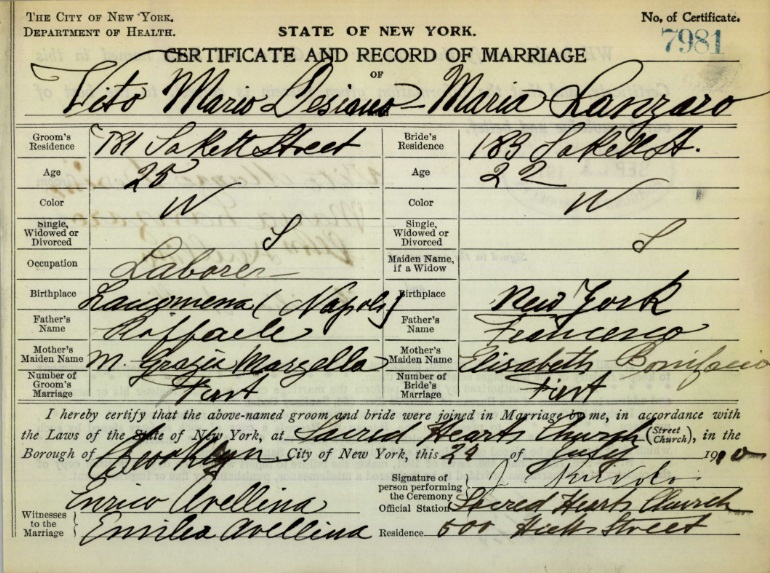 THE CITY OF NEW YORK. No. of Certificate.
DEPARTMENT OF HEALTH. STATE OF NEW YORK. 7981
CERTIFICATE AND RECORD OF MARRIAGE
OF
Vito Mario Desiano – Maria Lanzaro
Groom's Residence 781 Sakett Street Bride's Residence 183 Sakett St.
Age 25 Age 22
Color W Color W
Single, Widowed or Divorced S Single, Widowed or Divorced S
Occupation Laborer Maiden Name, if a Widow
Birthplace (Napoli) Birthplace New York
Father's Name Raffaele Father's Name Francesco
Mother's Maiden Name M. Grazia Marzella Mother's Maiden Name Elisabeth Bonifacio
Number of Groom's Marriage First Number of Bride's Marriage First
I hereby certify that the above-named groom and bride were joined in Marriage by me, in accordance with
the Laws of the State of New York, at Sacred Hearts Church (Street Church), in the
Borough of Brooklyn City of New York, this 24 of July 1910
Signature of person performing the Ceremony J.
Witnesses to the Marriage Enrico Avellina Official Station Sacred Hearts Church
Emilia Avellina Residence 500 Hicks Street